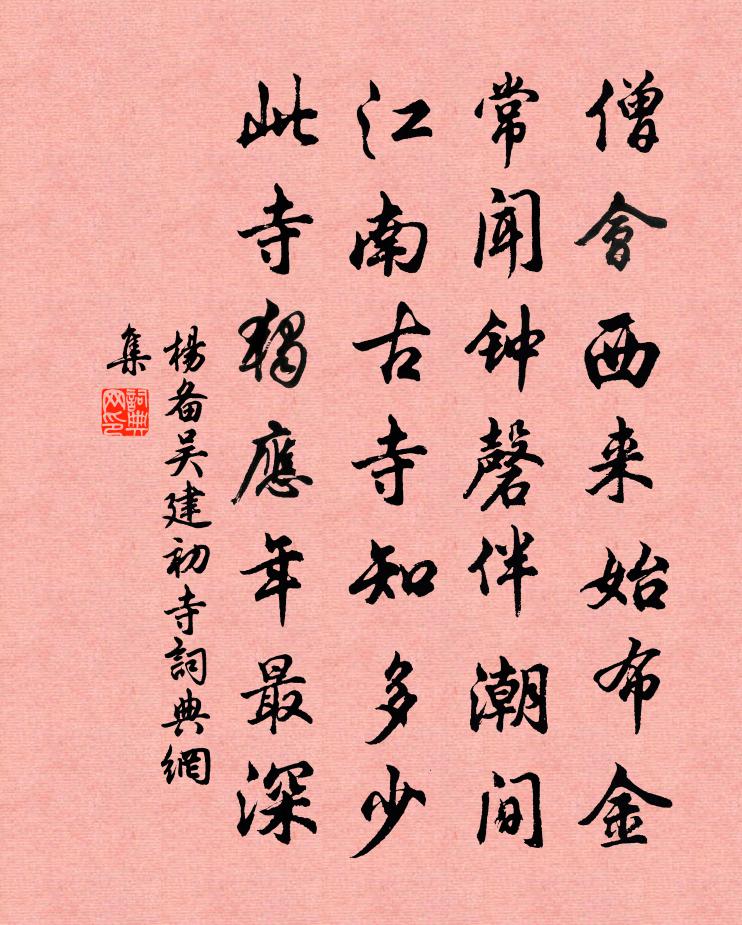 僧會西来始布金
常聞钟磬伴潮间
江南古寺知多少
此寺獨應年最深
楊备吴建初寺詞典網
集
詞典
网印